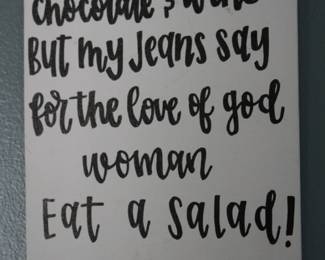 chocolate & wine
But my Jeans say
for the love of god
woman
Eat a Salad!